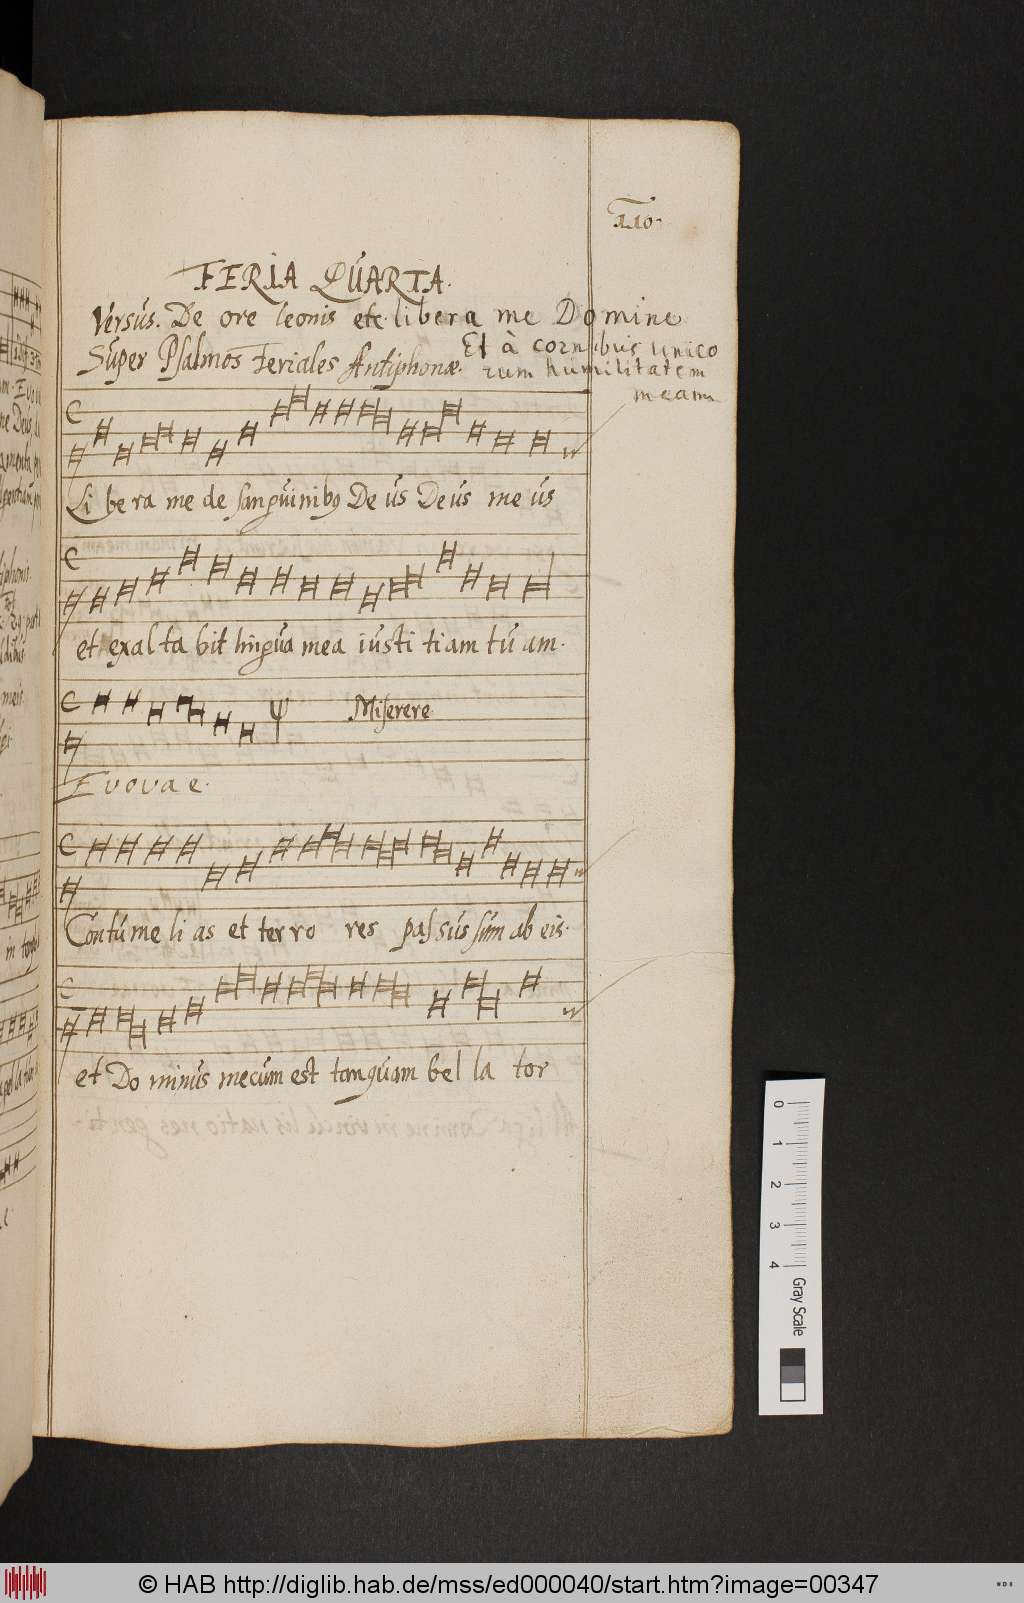 110
FERIA QUARTA.
Versus. De ore leonis etc. libera me Domine
Super Psalmos Feriales Antiphonæ.
Et à cornibus unico
rum humilitatem
meam
Li be ra me de sanguinibus De us Deus me us
et exal ta bit lingua mea iusti tiam tu am.
Miserere
E v o v a e.
Contu me li as et ter ro res passus sum ab eis.
et Do minus mecum est tanquam bel la tor
0 1 2 3 4 Gray Scale
© HAB http://diglib.hab.de/mss/ed000040/start.htm?image=00347